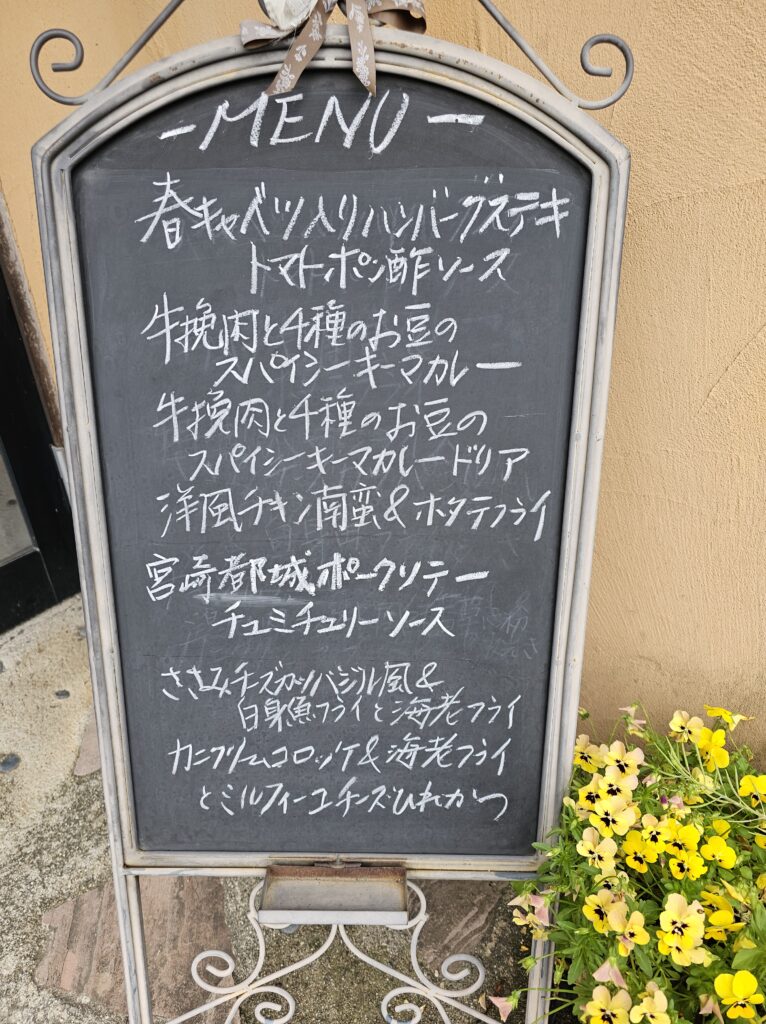 -MENU-
春キャベツ入りハンバーグステキ
トマトポン酢ソース
牛挽肉と4種のお豆の
スパイシーキーマカレー
牛挽肉と4種のお豆の
スパイシーキーマカレードリア
洋風チキン南蛮&ホタテフライ
宮崎都城ポークソテー
チュミチュリーソース
ささみチーズカツバジル風&
白身魚フライと海老フライ
カニクリームコロッケ&海老フライ
とミルフィーユチーズひれかつ